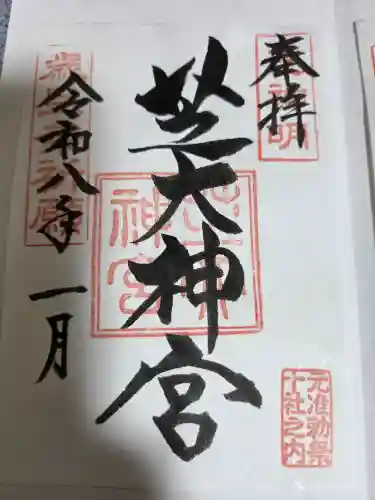 奉拝
芝大神宮
令和八年一月
元准勅祭
十社之内